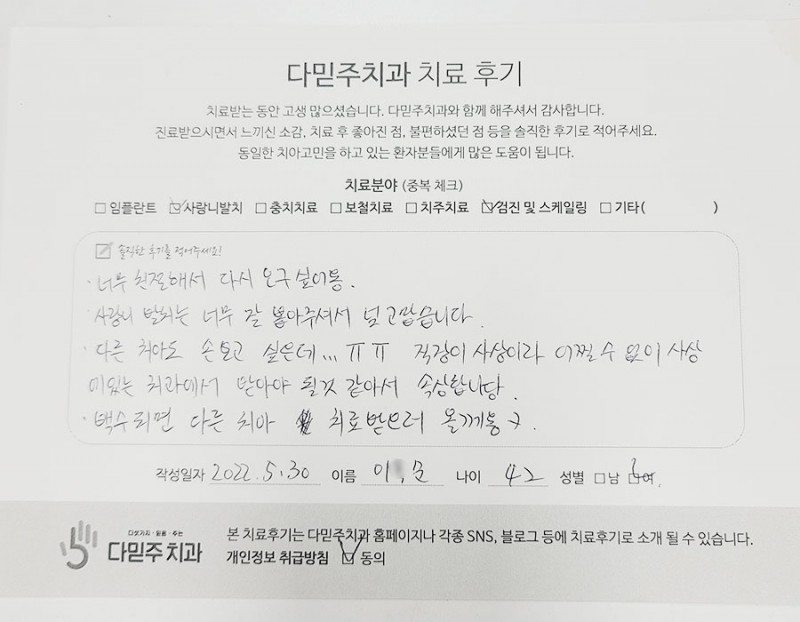 다믿주치과 치료 후기
치료받는 동안 고생 많으셨습니다. 다믿주치과와 함께 해주셔서 감사합니다.
진료받으시면서 느끼신 소감, 치료 후 좋아진 점, 불편하셨던 점 등을 솔직한 후기로 적어주세요.
동일한 치아고민을 하고 있는 환자분들에게 많은 도움이 됩니다.
치료분야 (중복 체크)
☐ 임플란트 ☑ 사랑니발치 ☐ 충치치료 ☐ 보철치료 ☐ 치주치료 ☑ 검진 및 스케일링 ☐ 기타( )
솔직한 후기를 적어주세요!
· 너무 친절해서 다시 오구 싶어용.
· 사랑니 발취는 너무 잘 뽑아주셔서 넘 고맙습니다.
· 다른 치아도 손보고 싶은데... ㅠㅠ 직장이 사상이라 어쩔 수 없이 사상
에있는 치과에서 받아야 될것 같아서 속상합니당.
· 백수 되면 다른 치아 치료 받으러 올께용
작성일자 2022. 5. 30 이름 이 나이 42 성별 ☐남 ☑여
다섯가지·믿음·주는
다믿주치과
본 치료후기는 다믿주치과 홈페이지나 각종 SNS, 블로그 등에 치료후기로 소개 될 수 있습니다.
개인정보 취급방침 ☑ 동의